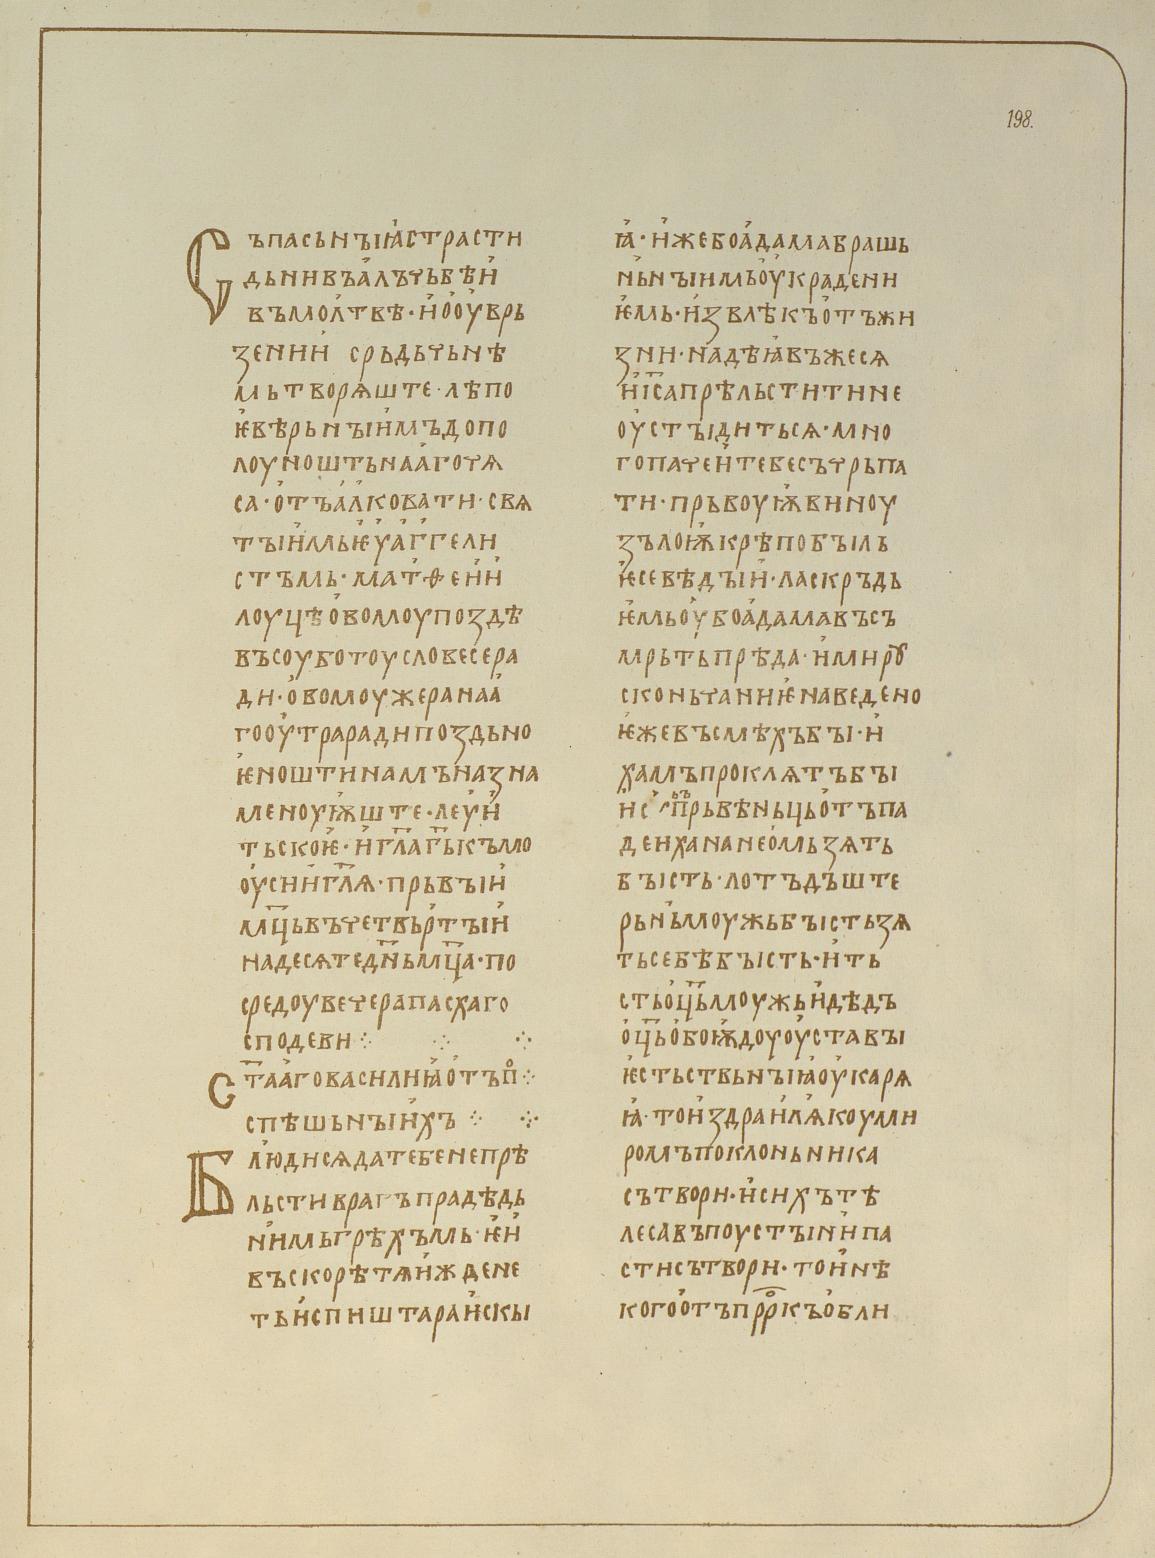 198.
Съпасьнъіꙗ страсти
дьни въ алъчьбѣ и
въ молтвѣ · и о оувьрь
зении срьдьчьнѣ
мь творѧште · лѣпо
ѥ вѣрьнъіимъ до по
лоуношты на агоѧ
са · отъалковати · свѧ
тъіимь ѥуаггели
стъмь · матѳеи и
лоуцѣ овомоу поздѣ
въ соуботоу словесе ра
ди · овомоу же рана а
го оутра ради поздьно
ѥ ношти намъ назна
меноуѭште · леуи
тьскоѥ · и гла г҃ь къ мо
оуси и гл҃ѧ · прьвъіи
мц҃ь въ четвьртъіи
на десѧте дн҃ь мц҃а · по
средоу вечера пасха го
сподеви ⁘ ⁘ ⁘
ст҃ааго васили ꙗ отъ п ⁘
спѣшьнъіихъ ⁘ ⁘
Блюди сѧ да тебе не прѣ
льсти врагъ прадѣдь
ниимь грѣхъмь · ѥи
въскорѣ тѧ ижде не
ть и спишта раискы
ꙗ · иже бо адама брашь
ньнъіимь оукрадени
ѥмь · извлѣкъ отъ жи
зни · надѣꙗвъ же сѧ
и і҃са прѣльстити не
оустъідить сѧ · мно
го паче и тебе съчрьпа
ти · прьвоуѭ виноу
зълоѭ крѣпо бъілъ
ѥ се вѣдъіи · ласкрьдь
ѥмь оубо адама въ съ
мрьть прѣда · и мироу
сконьчаниѥ наведено
ѥже въ смѣхъ бъі · и
хамъ проклѧтъ бъі
и с прьвѣньць отъпа
де и ханане омь зѧть
бъість · лотъ дъште
рьнѣ моужь бъість зѧ
ть себѣ бъість · и ть
сть оц҃ь моужь и дѣдъ
оц҃ь обоѭдоу оуставъі
ѥстьствьнъіꙗ оукарѧ
ꙗ · то и здраилѧ коуми
ромъ поклоньника
сътвори · и сихъ тѣ
леса въ поустъіни па
сти сътвори · то и нѣ
кого отъ прр҃къ обли